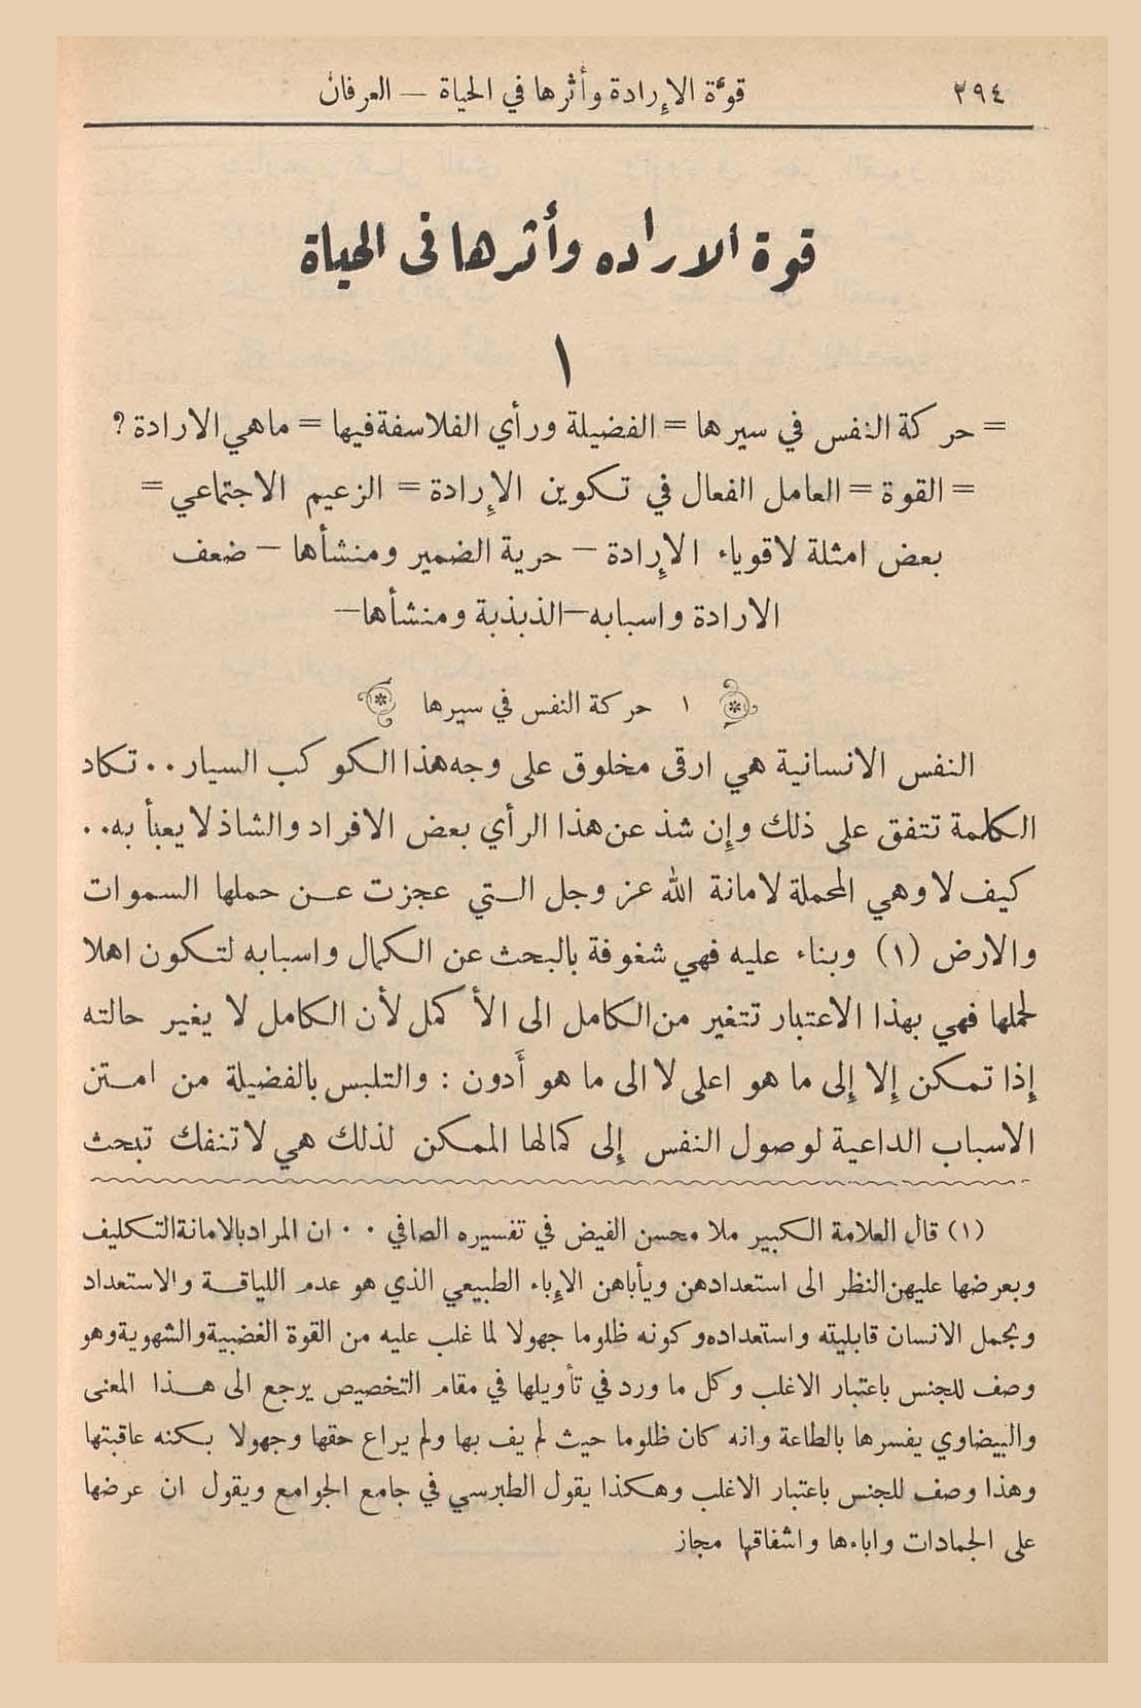 ٣٩٤ قوَّة الإرادة وأثرها في الحياة — العرفان
قوة الاراده وأثرها فى الحياة
١
= حركة النفس في سيرها = الفضيلة ورأي الفلاسفة فيها = ماهي الارادة ؟
= القوة = العامل الفعال في تكوين الإرادة = الزعيم الاجتماعي =
بعض امثلة لاقوياء الإرادة — حرية الضمير ومنشأها — ضعف
الارادة واسبابه — الذبذبة ومنشأها —
١ حركة النفس في سيرها
النفس الانسانية هي ارقى مخلوق على وجه هذا الكوكب السيار .. تكاد
الكلمة تتفق على ذلك وإن شذ عن هذا الرأي بعض الافراد والشاذ لا يعبأ به ..
كيف لا وهي المحملة لامانة الله عز وجل التي عجزت عن حملها السموات
والارض (١) وبناء عليه فهي شغوفة بالبحث عن الكمال واسبابه لتكون اهلا
لحملها فهي بهذا الاعتبار تتغير من الكامل الى الأكمل لأن الكامل لا يغير حالته
إذا تمكن إلا إلى ما هو اعلى لا الى ما هو أَدون : والتلبس بالفضيلة من امتن
الاسباب الداعية لوصول النفس إلى كمالها الممكن لذلك هي لا تنفك تبحث
(١) قال العلامة الكبير ملا محسن الفيض في تفسيره الصافي .. ان المراد بالامانة التكليف
وبعرضها عليهن النظر الى استعدادهن ويأباهن الإباء الطبيعي الذي هو عدم اللياقة والاستعداد
وبحمل الانسان قابليته واستعداده وكونه ظلوما جهولا لما غلب عليه من القوة الغضبية والشهوية وهو
وصف للجنس باعتبار الاغلب وكل ما ورد في تأويلها في مقام التخصيص يرجع الى هذا المعنى
والبيضاوي يفسرها بالطاعة وانه كان ظلوما حيث لم يف بها ولم يراع حقها وجهولا بكنه عاقبتها
وهذا وصف للجنس باعتبار الاغلب وهكذا يقول الطبرسي في جامع الجوامع ويقول ان عرضها
على الجمادات واباءها واشفاقها مجاز